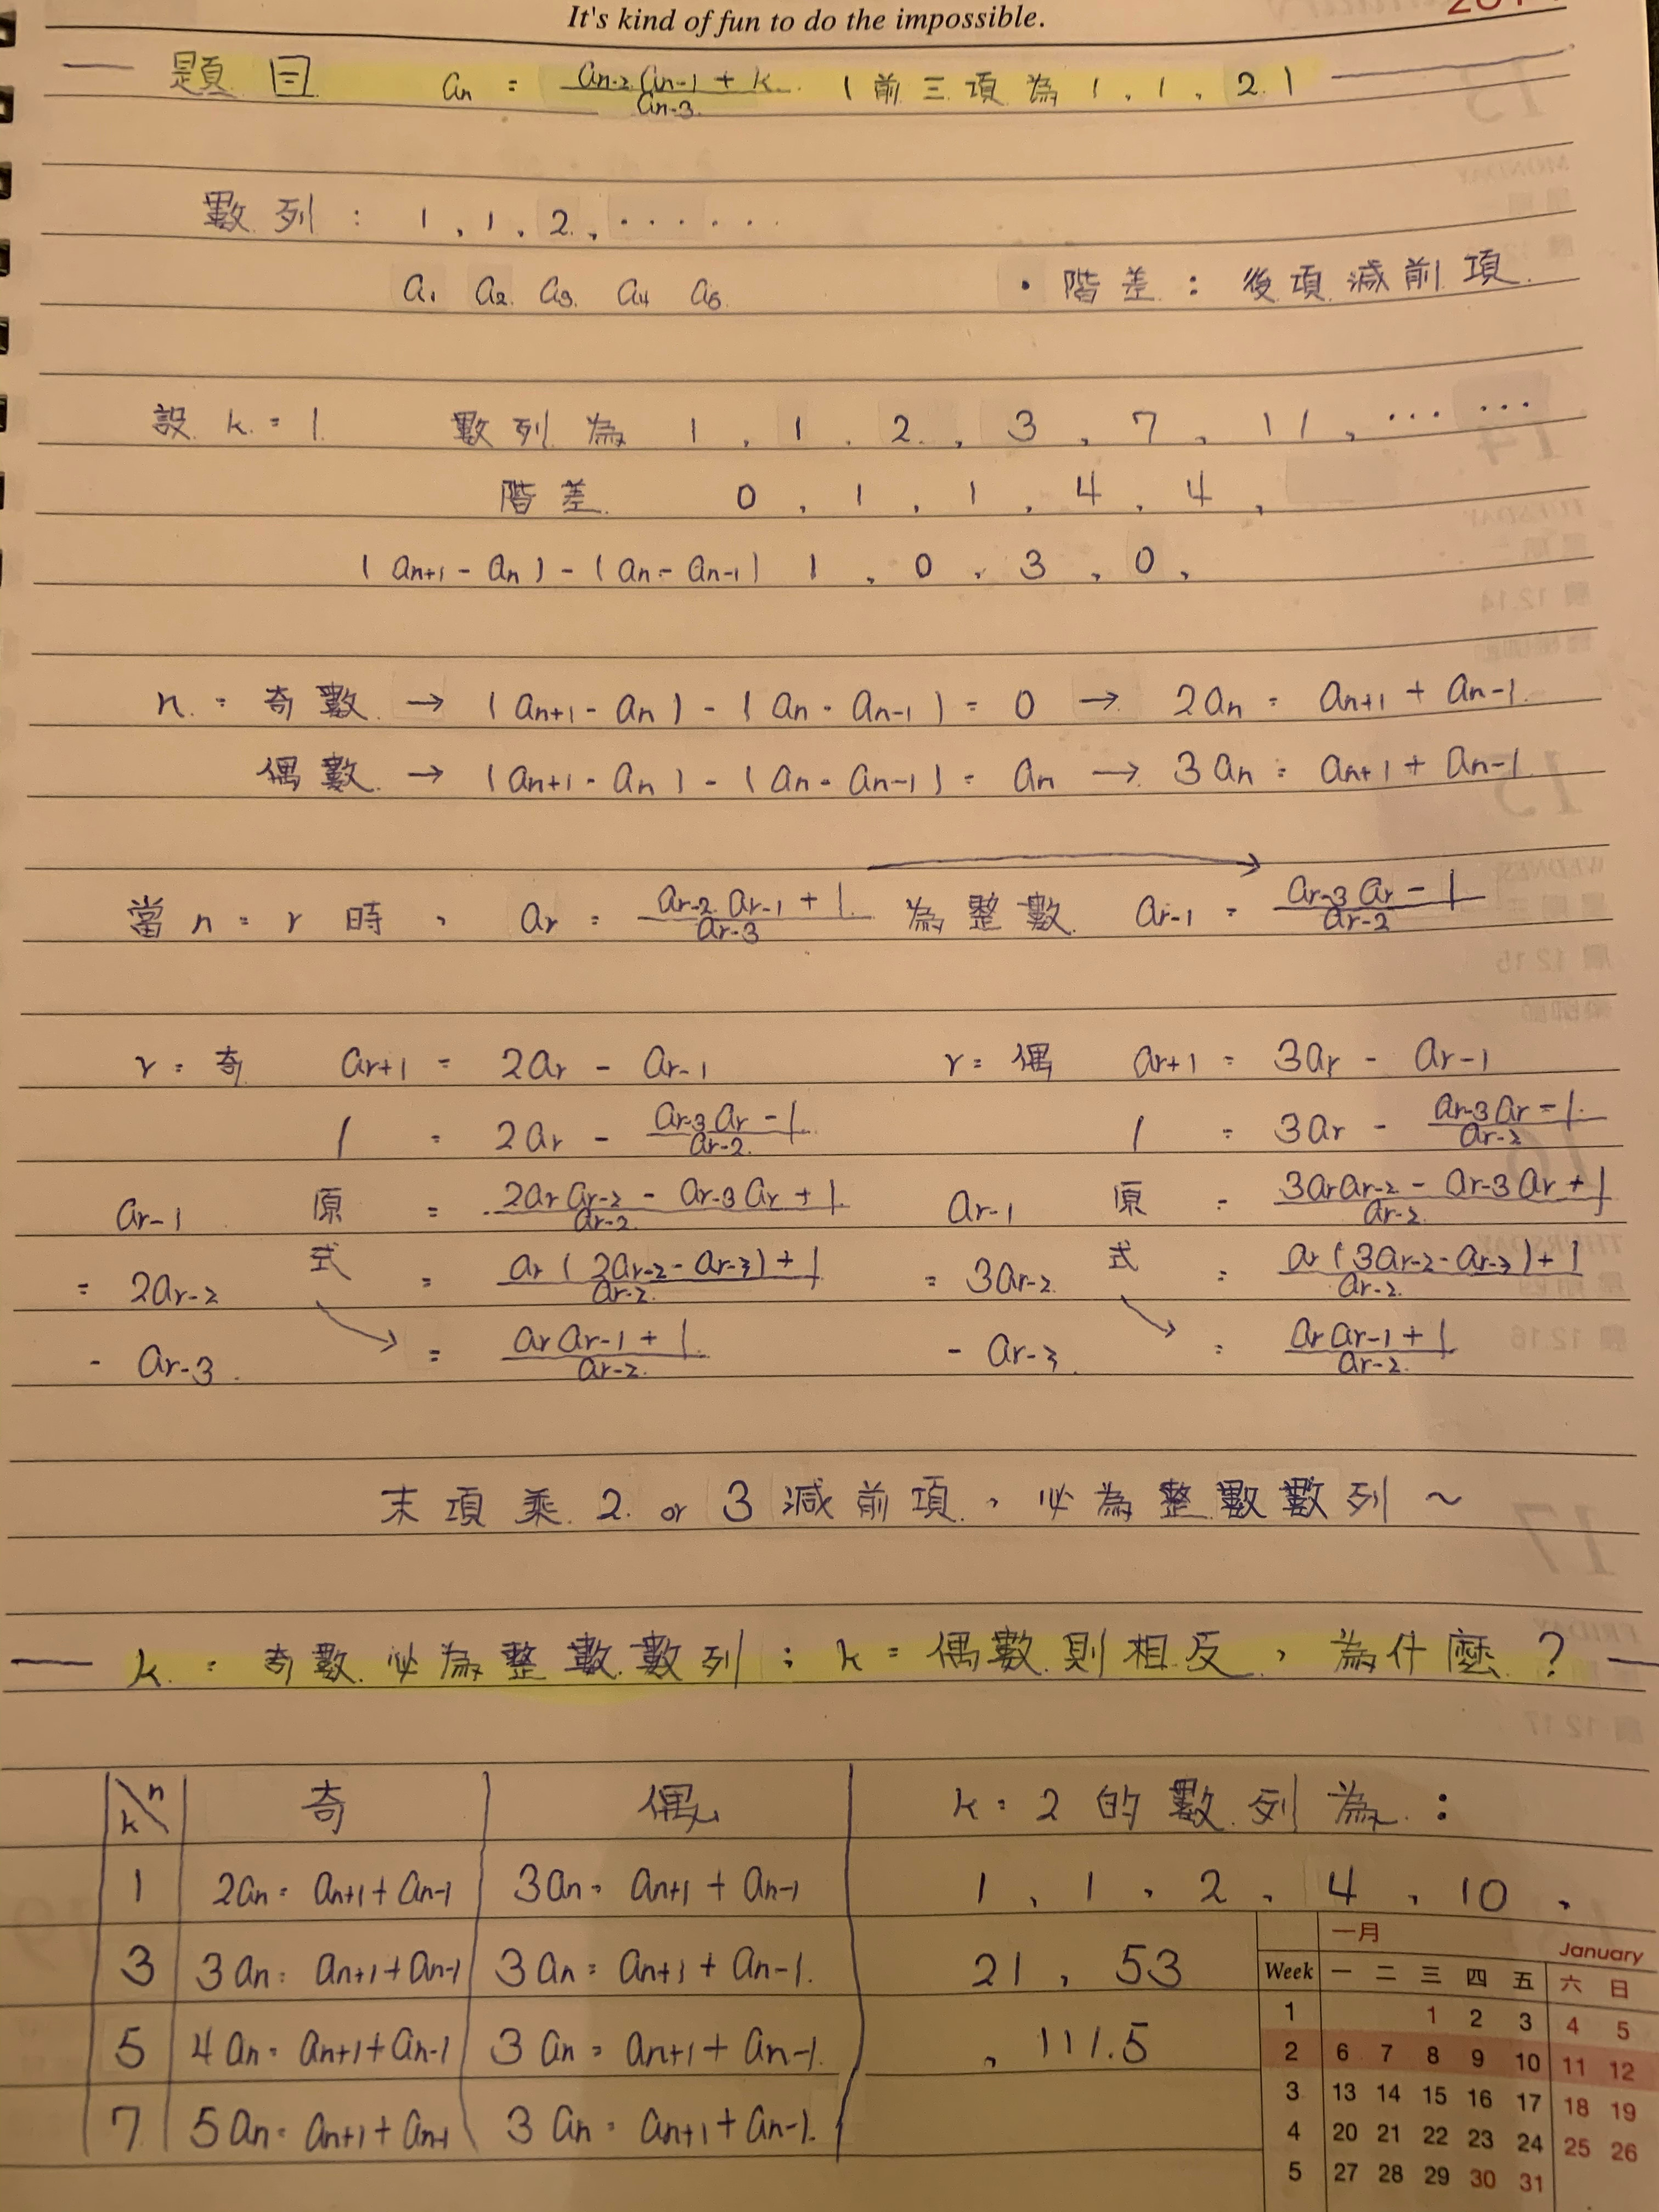 It's kind of fun to do the impossible.
題目 an = an-2 an-1 + k / an-3 (前三項為 1, 1, 2)
數列: 1, 1, 2, ......
a1 a2 a3 a4 a5
• 階差: 後項減前項
設 k = 1 數列為 1, 1, 2, 3, 7, 11, ... ...
階差 0, 1, 1, 4, 4,
(an+1 - an) - (an - an-1) 1, 0, 3, 0,
n = 奇數 → (an+1 - an) - (an - an-1) = 0 → 2an = an+1 + an-1
偶數 → (an+1 - an) - (an - an-1) = an → 3an = an+1 + an-1
當 n = r 時, ar = ar-2 ar-1 + 1 / ar-3 為整數 ar-1 = ar-3 ar - 1 / ar-2
r = 奇 ar+1 = 2ar - ar-1
= 2ar - ar-3 ar - 1 / ar-2
ar-1 原 = 2ar ar-2 - ar-3 ar + 1 / ar-2
= 2ar-2 式 = ar (2ar-2 - ar-3) + 1 / ar-2
- ar-3 → = ar ar-1 + 1 / ar-2
r = 偶 ar+1 = 3ar - ar-1
= 3ar - ar-3 ar - 1 / ar-2
ar-1 原 = 3ar ar-2 - ar-3 ar + 1 / ar-2
= 3ar-2 式 = ar (3ar-2 - ar-3) + 1 / ar-2
- ar-3 → = ar ar-1 + 1 / ar-2
末項乘 2 or 3 減前項, 必為整數數列~
k = 奇數必為整數數列; k = 偶數則相反, 為什麼?
k \ n 奇 偶
1 2an = an+1 + an-1 3an = an+1 + an-1
3 3an = an+1 + an-1 3an = an+1 + an-1
5 4an = an+1 + an-1 3an = an+1 + an-1
7 5an = an+1 + an-1 3an = an+1 + an-1
k = 2 的數列為:
1, 1, 2, 4, 10,
21, 53
, 111.5
一月 January
Week 一 二 三 四 五 六 日
1 1 2 3 4 5
2 6 7 8 9 10 11 12
3 13 14 15 16 17 18 19
4 20 21 22 23 24 25 26
5 27 28 29 30 31